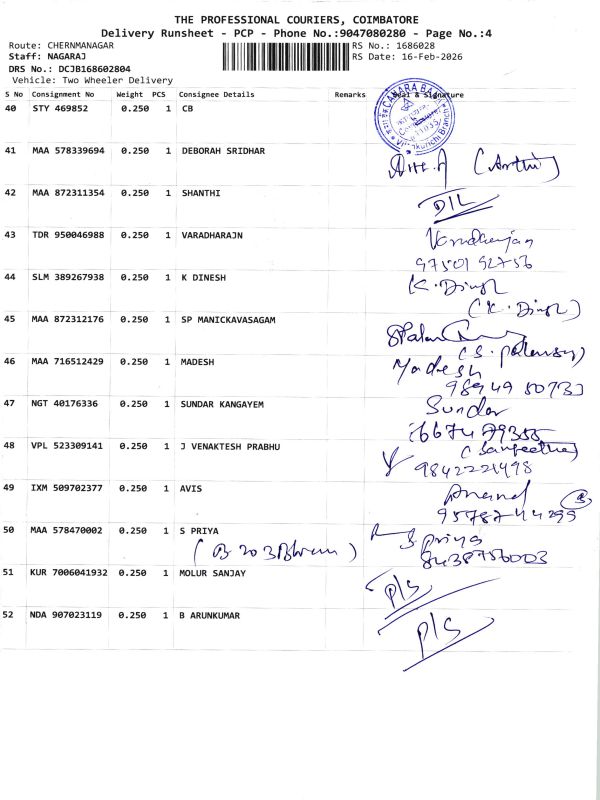 THE PROFESSIONAL COURIERS, COIMBATORE
Delivery Runsheet - PCP - Phone No.:9047080280 - Page No.:4
Route: CHERNMANAGAR RS No.: 1686028
Staff: NAGARAJ RS Date: 16-Feb-2026
DRS No.: DCJB168602804
Vehicle: Two Wheeler Delivery
S No Consignment No Weight PCS Consignee Details Remarks Seal & Signature
40 STY 469852 0.250 1 CB
CANARA BANK
Branch
41 MAA 578339694 0.250 1 DEBORAH SRIDHAR
(Arthi)
42 MAA 872311354 0.250 1 SHANTHI
D/L
43 TDR 950046988 0.250 1 VARADHARAJN
Varadharajan
9750192756
44 SLM 389267938 0.250 1 K DINESH
K. Dinesh
(K. Dinesh)
45 MAA 872312176 0.250 1 SP MANICKAVASAGAM
46 MAA 716512429 0.250 1 MADESH
Madesh
47 NGT 40176336 0.250 1 SUNDAR KANGAYEM
Sundar
48 VPL 523309141 0.250 1 J VENAKTESH PRABHU
(Sangeetha)
9842221498
49 IXM 509702377 0.250 1 AVIS
Anand
9578744299
50 MAA 578470002 0.250 1 S PRIYA
S. Priya
8438756003
51 KUR 7006041932 0.250 1 MOLUR SANJAY
P/S
52 NDA 907023119 0.250 1 B ARUNKUMAR
P/S